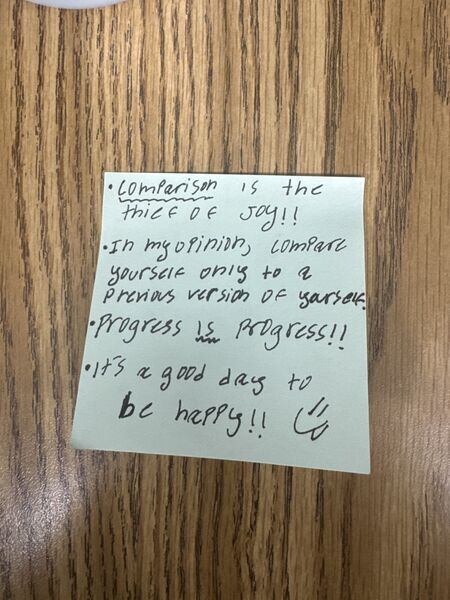 • Comparison is the
thief of Joy!!
• In my opinion, compare
yourself only to a
previous version of yourself.
• Progress is Progress!!
• It's a good day to
be happy!!